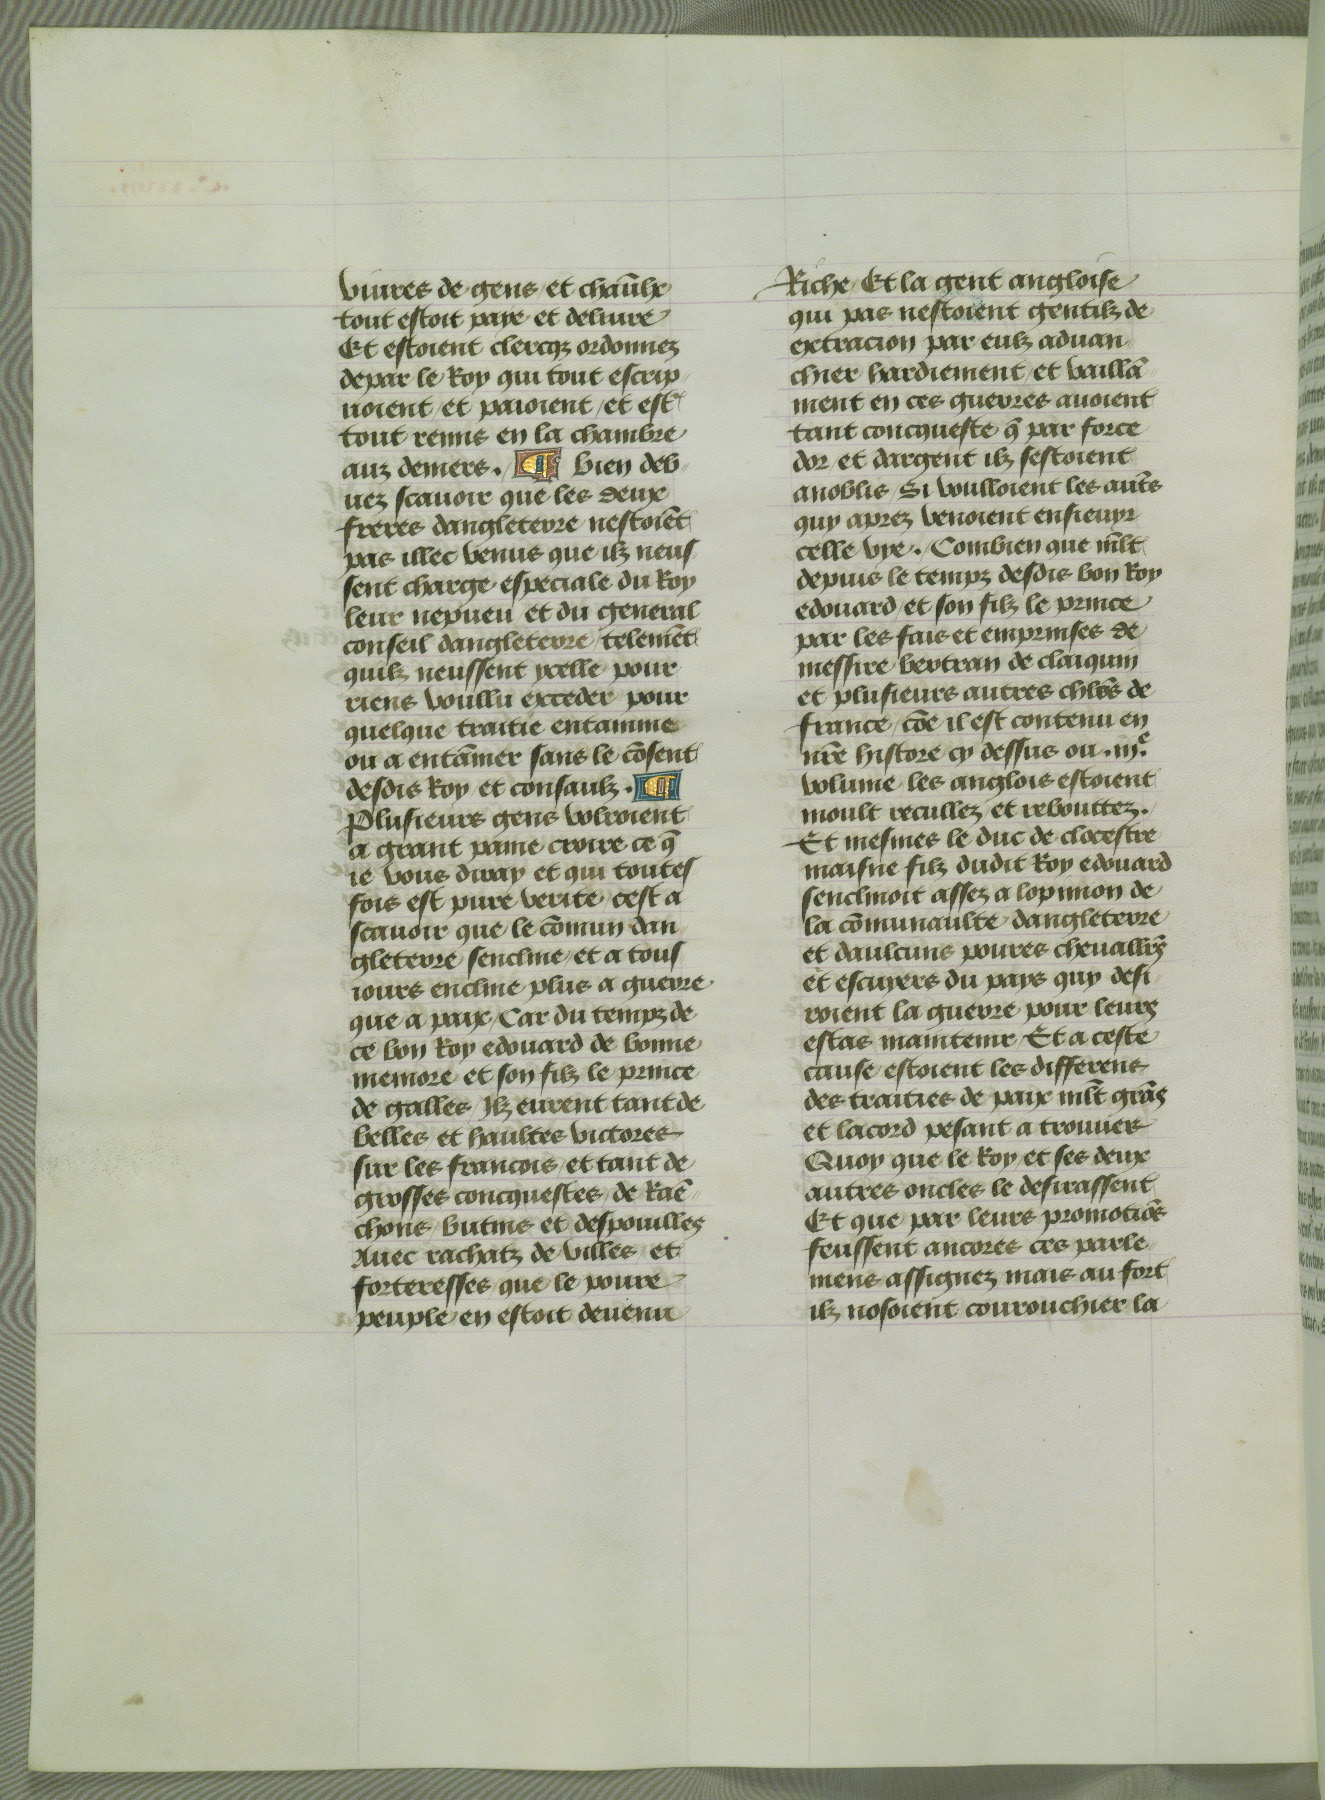 viures de gens / et chaũlx
tout estoit paye et deliure
Et estoient clercqz ordonnez
depar le Roy qui tout escrip
uoient / et paioient / et est
tout renns en la chambre
auz deniers . ¶ Bien deb
uez scauoir que les deux
freres dangleterre nestoiẽt
pas illec venus que ilz neus
sent charge especiale du Roy
leur nepueu et du general
conseil dangleterre / telemẽt
quilz neussent ycelle pour
riens voullu exceder pour
quelque traitie entamme
ou a entãmer sans le cõsent
desdis Roy et consaulz . ¶
Plusieurs gens volroient
a grant paine croire ce q̃
ie vous diray et qui toutes
fois est pure verite / cest a
scauoir que le cõmun dan
gleterre sencline / et a tous
iours encline plus a guerre
que a paix / Car du tempz de
ce bon Roy edouard de bonne
memore et son filz le prince
de galles / Ilz eurent tant de
belles et haultes victores
sur les francois / et tant de
grosses concquestes / de Raẽ
chons / butins et despouilles
Auec rachatz de villes / et
forteresses / que le poure
peuple en estoit deuenu
Riche / Et la gent angloise
qui pas nestoient gentilz de
extracion par eulz aduan
chier hardiement / et vaillã
ment en ces guerres auoient
tant concqueste q̃ par force
dor / et dargent ilz sestoient
anoblis / Si voulloient les autr̃s
quy aprez venoient ensieuyr
celle vye . Combien que mlt̃
depuis le tempz desdis bon Roy
edouard / et son filz le prince
par les fais et emprinses de
messire bertran de claiquin
et plusieurs autres chl̃rs de
france / cõe il est contenu en
nr̃e histore cy dessus ou .iijᵉ.
volume les anglois estoient
moult recullez et reboutez .
Et mesmes le duc de clocestre
maisne filz dudit Roy edouard
senclinoit assez a lopinion de
la cõmunaulte dangleterre
et daulcuns poures cheualliers̃
et escuyers du pays quy desi
roient la guerre pour leurs
estas maintenir / Et a ceste
cause estoient les differens
des traities de paix mlt̃ grãs
et lacord pesant a trouuer
Quoy que le Roy / et ses deux
autres oncles le desirassent
Et que par leurs promotiõs
feussent ancores ces parle
mens assignez / mais au fort
ilz nosoient courouchier la